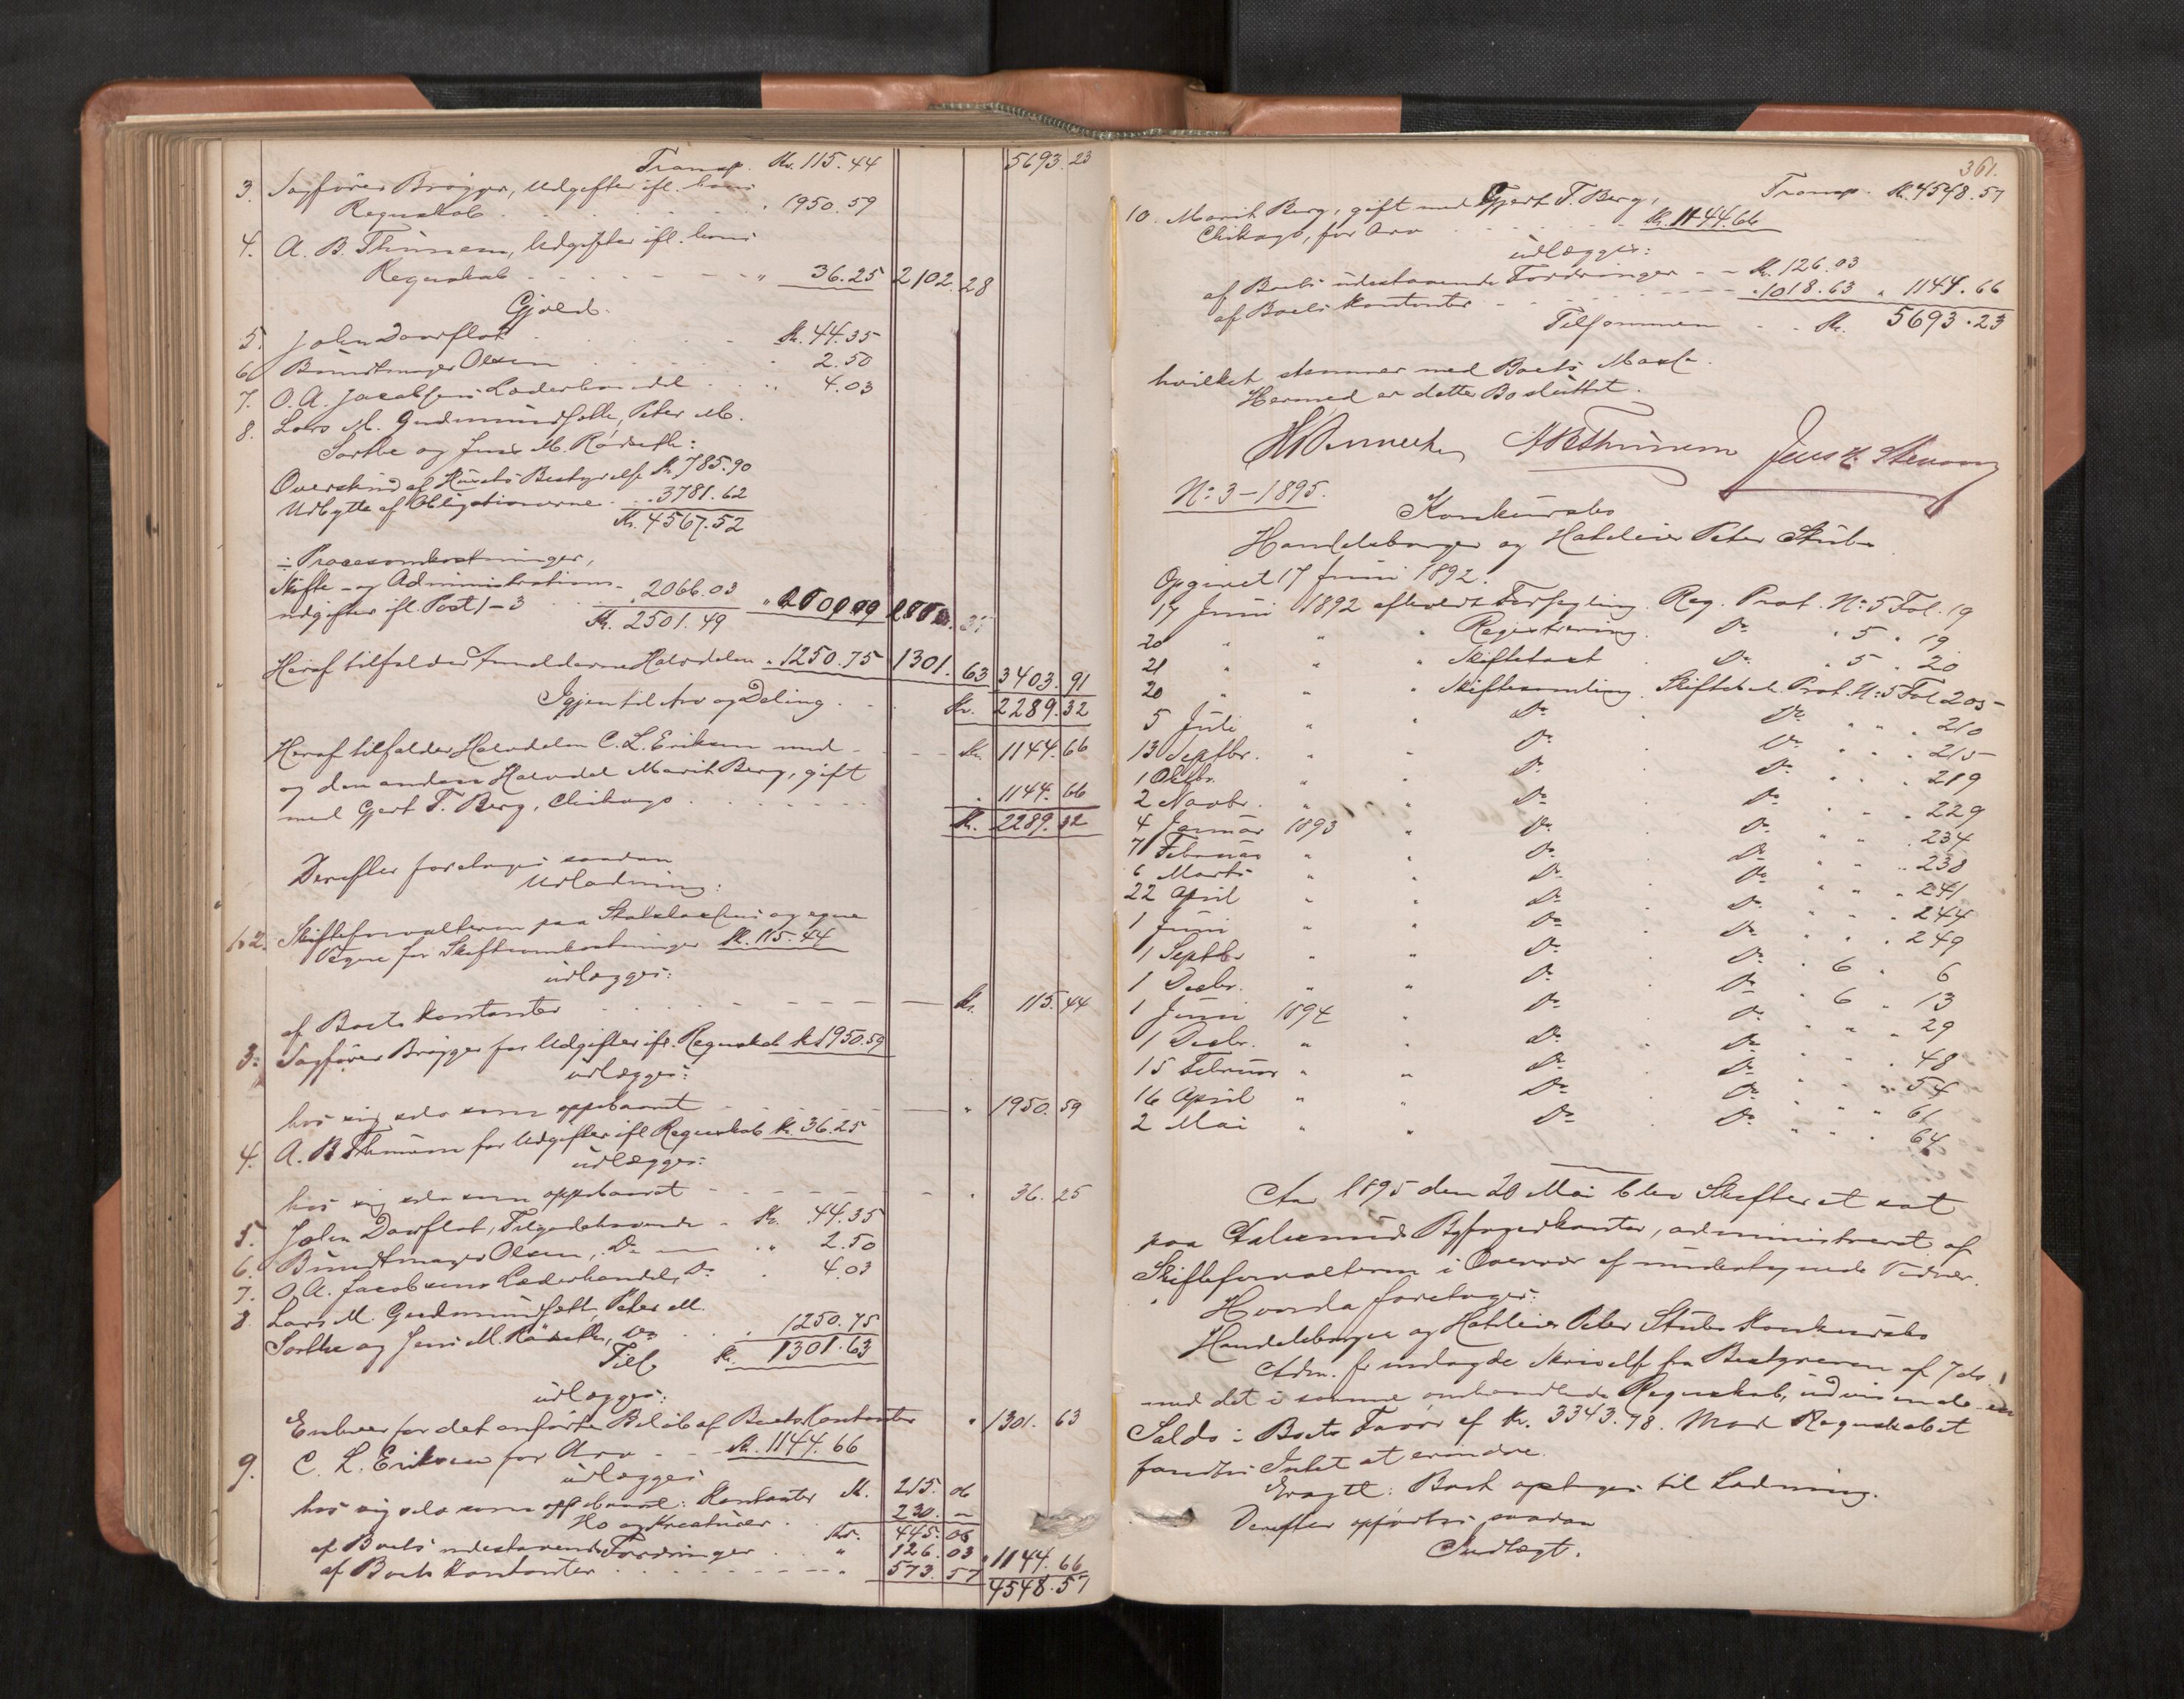 Transp. Kr. 115.44 5693.23
3. Sagfører Brøgger, Udgifter ifl. hans
Regnskab " 1950.59
4. A. B. Thinnem, Udgifter ifl. hans
Regnskab " 36.25 2102.28
Gjæld.
5. John Davflot Kr. 44.35
6. Bundtmager Olsen 2.50
7. O. A. Jacobsens Læderhandel " 4.03
8. Lars M. Gudmundsæth, Peter M.
Sorthe og Jens M. Rødseth:
Overskud af Husets Bestyrelse Kr. 785.90
Udbytte af Obligationerne " 3781.62
Kr. 4567.52
÷ Procesomkostninger,
Skifte- og Administrations-
udgifter ifl. Post 1-3 " 2066.03
Kr. 2501.49
Heraf tilfalder Anmelderne Halvdelen " 1250.75 1301.63 3403.91
Igjen til Arv og Deling Kr. 2289.32
Heraf tilfalder Halvdelen C. L. Eriksen med Kr. 1144.66
og den anden Halvdel Marit Berg, gift
med Gjert T. Berg, Chikago " 1144.66
Kr. 2289.32
Derefter foretoges saadan
Udlodning:
1 & 2. Skifteforvalteren paa Statskassens og egne
Vegne for Skifteomkostninger Kr. 115.44
udlægges:
af Boets Kontanter Kr. 115.44
3. Sagfører Brøgger for Udgifter ifl. Regnskab Kr. 1950.59
udlægges:
hos sig selv som oppebaaret " 1950.59
4. A. B. Thinnem for Udgifter ifl. Regnskab Kr. 36.25
udlægges:
hos sig selv som oppebaaret " 36.25
5. John Davflot, Tilgodehavende Kr. 44.35
6. Bundtmager Olsen, Do " 2.50
7. O. A. Jacobsens Læderhandel, Do " 4.03
8. Lars M. Gudmundsæth, Peter M.
Sorthe og Jens M. Rødseth, Do " 1250.75
Tils. Kr. 1301.63
udlægges:
Enhver for det anførte Beløb af Boets Kontanter " 1301.63
9. C. L. Eriksen for Arv Kr. 1144.66
udlægges
hos sig selv som oppebaaret: Kontanter Kr. 215.06
Hø og Kreaturer 230. -
Kr. 445.06
af Boets udestaaende Fordringer " 126.03
af Boets Kontanter " 573.57 " 1144.66
4548.57
361.
Transp. Kr. 4548.57
10. Marit Berg, gift med Gjert T. Berg,
Chikago, for Arv Kr. 1144.66
udlægges:
af Boets udestaaende Fordringer Kr. 126.03
af Boets Kontanter " 1018.63 " 1144.66
Tilsammen Kr. 5693.23
hvilket stemmer med Boets Masse.
Hermed er dette Bo sluttet.
ABThinnem
No 3-1895.
Konkursbo
Handelsborger og Hoteleier Peter Stub
Opgivet 17 Juni 1892.
17 Juni 1892 afholdt Forsegling Reg. Prot. No 5 Fol. 19
20 " " " Registrering. Do " 5 " 19
21 " " " Skiftetaxt Do " 5 " 20
20 " " " Skiftesamling. Skifteb. Prot. No 5 Fol 205
5 Juli " " Do Do " " 210
13 Septbr. " " Do Do " " 215
1 Oktbr. " " Do Do " " 219
2 Novbr. " " Do Do " " 229
4 Januar 1893 " Do Do " " 234
7 Februar " " Do Do " " 238
6 Marts " " Do Do " " 241
22 April " " Do Do " " 244
1 Juni " " Do Do " " 249
1 Septbr " " Do Do " 6 " 6
1 Decbr. " " Do Do " 6 " 13
1 Juni 1894 " Do Do " " 29
1 Decbr. " " Do Do " " 48
15 Februar " " Do Do " " 54
16 April " " Do Do " " 61
2 Mai " " Do Do " " 64
Aar 1895 den 20 Mai blev Skifteret sat
paa Aalesunds Byfogedkontor, administreret af
Skifteforvalteren i Overvær af undertegnede Vidner.
Hvorda foretoges:
Handelsborger og Hoteleier Peter Stubs Konkursbo
Adm. fremlagde Skrivelse fra Bestyreren af 7 ds.
med det i samme omhandlede Regnskab, udvisende en
Saldo i Boets Favør af Kr. 3343.78. Mod Regnskabet
fandtes Intet at erindre.
Eragtt: Boet optages til Lodning.
Derefter opførtes saadan
Indtægt.